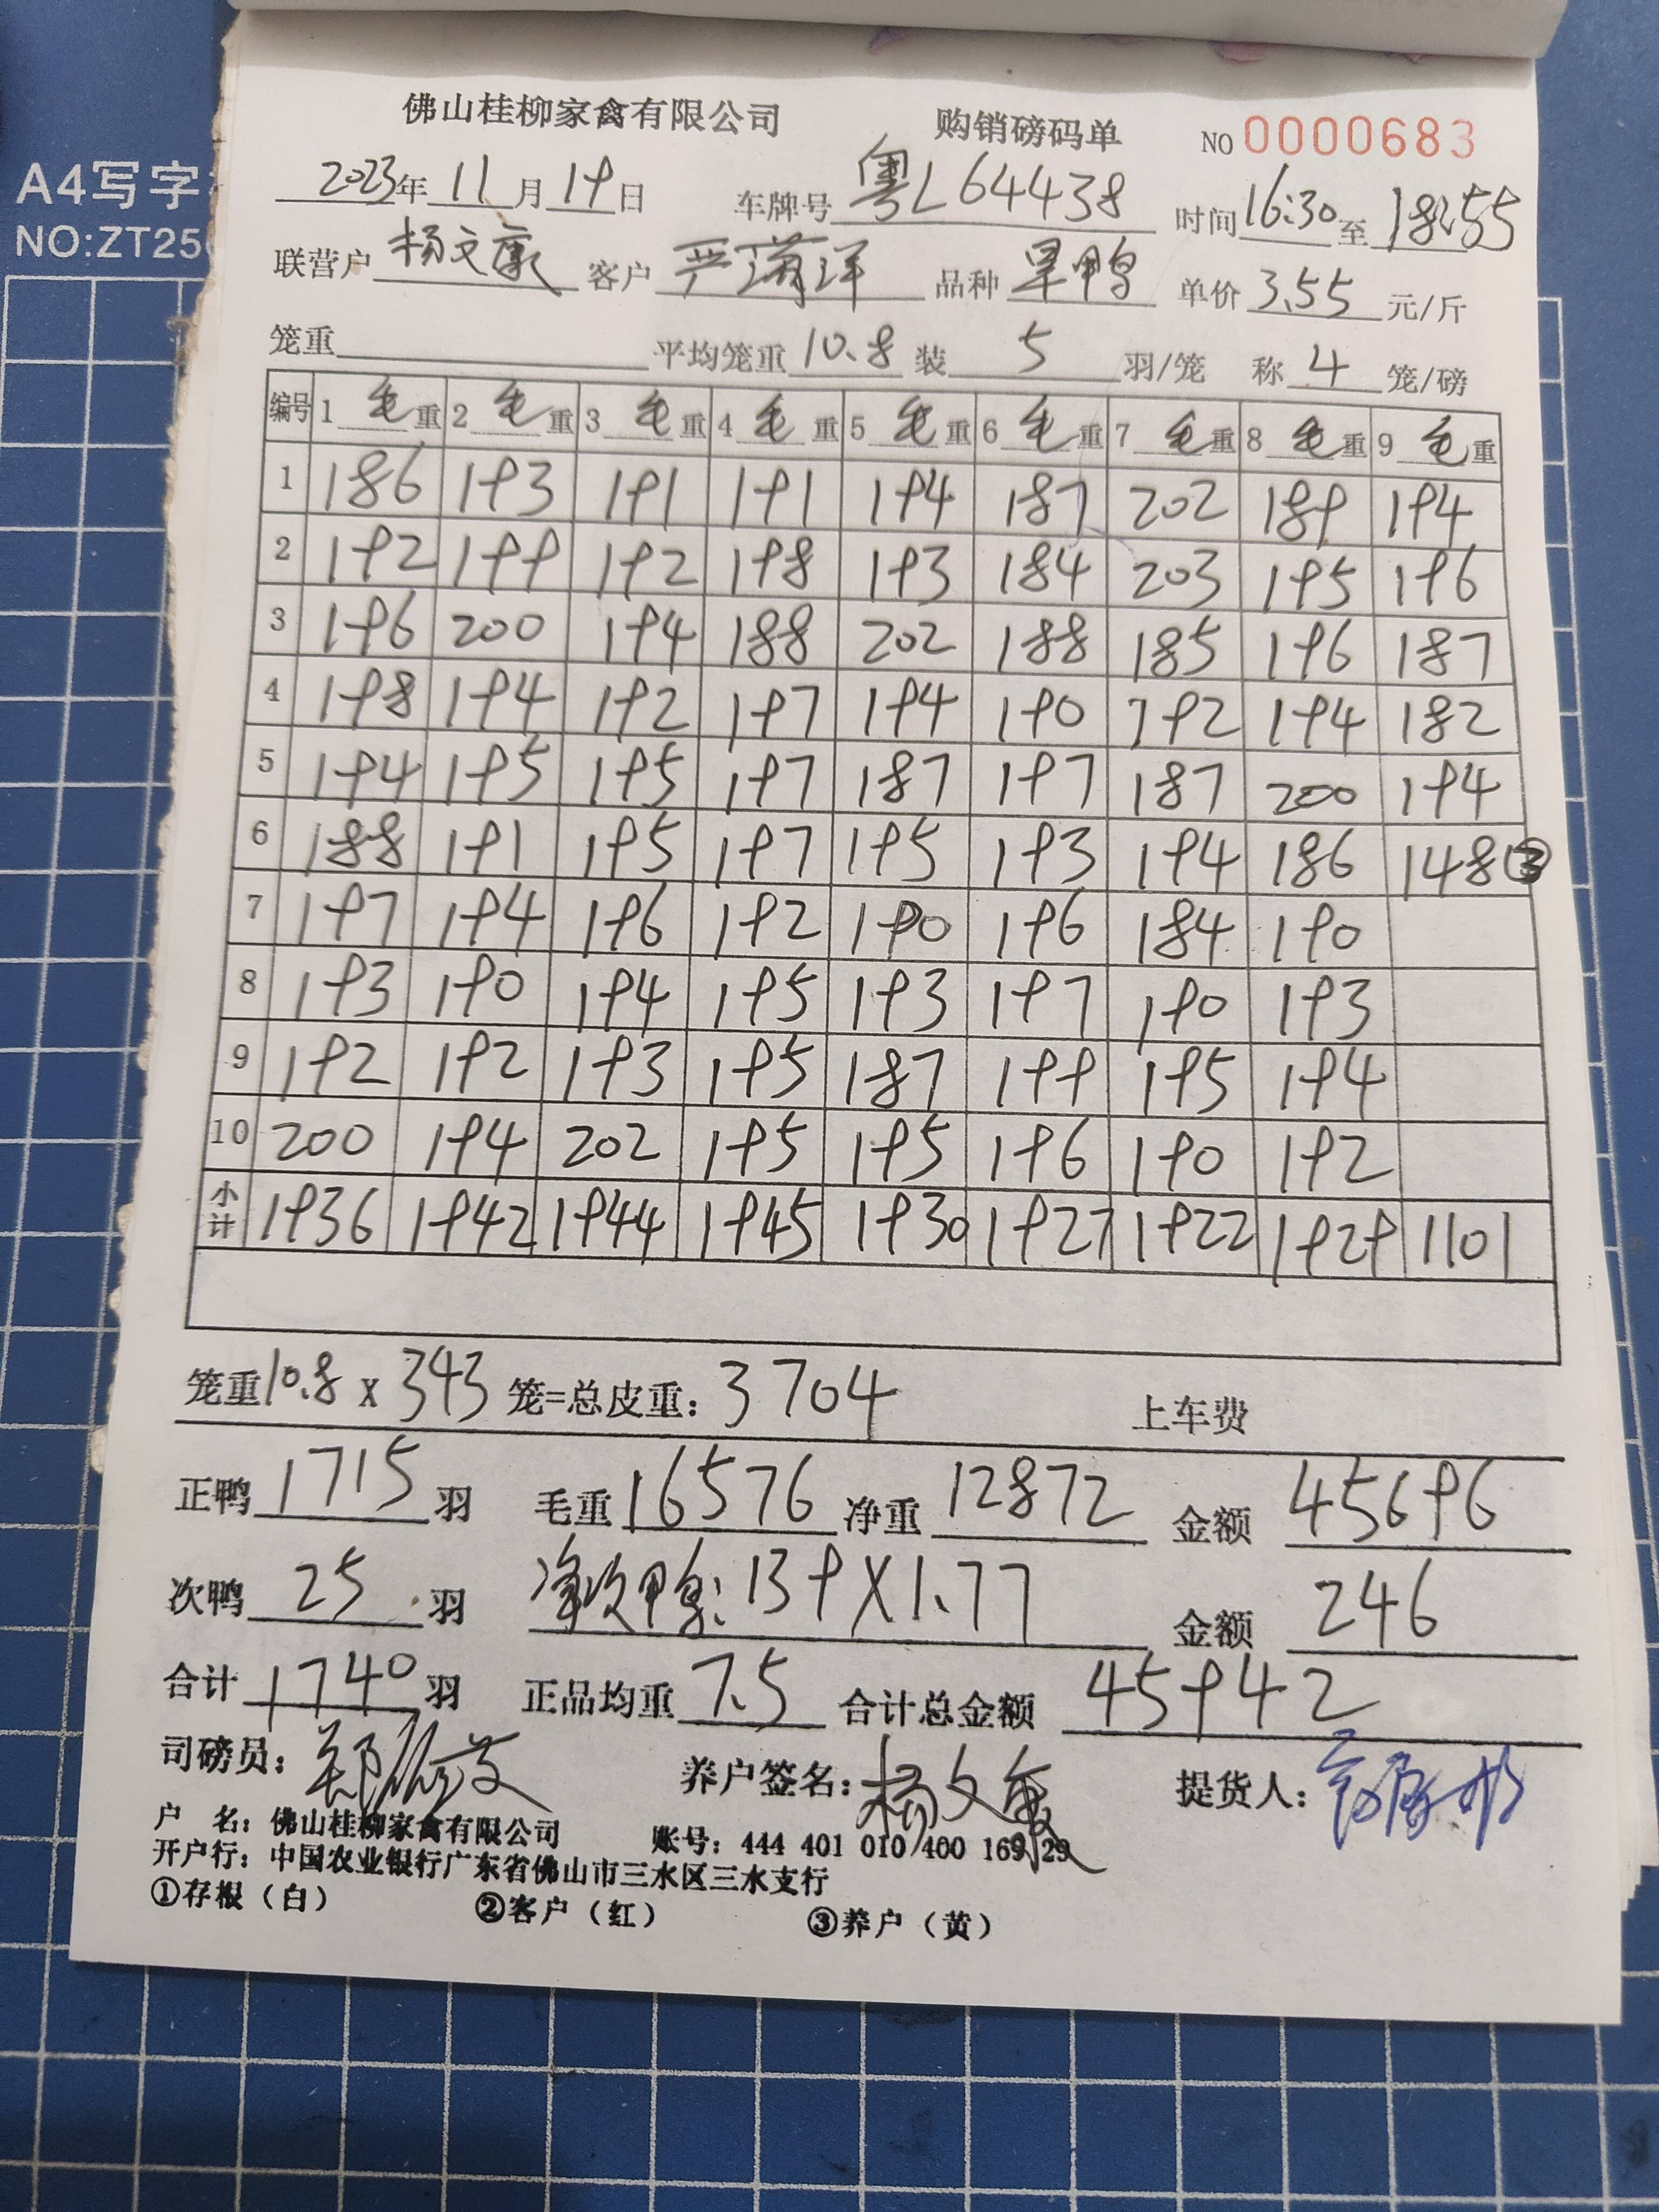 A4写字
NO:ZT25
佛山桂柳家禽有限公司 购销磅码单 NO 0000683
2023年 11月 19日 车牌号 粤L64438 时间 16:30 至 18:55
联营户 杨文康 客户 严满洋 品种 旱鸭 单价 3.55 元/斤
笼重 平均笼重 10.8 装 5 羽/笼 称 4 笼/磅
编号 1 毛重 2 毛重 3 毛重 4 毛重 5 毛重 6 毛重 7 毛重 8 毛重 9 毛重
1 186 193 191 191 194 187 202 189 194
2 192 199 192 198 193 184 203 195 196
3 196 200 194 188 202 188 185 196 187
4 198 194 192 197 194 190 192 194 182
5 194 195 195 197 187 197 187 200 194
6 188 191 195 197 195 193 194 186 148③
7 197 194 196 192 190 196 184 190
8 193 190 194 195 193 197 190 193
9 192 192 193 195 187 199 195 194
10 200 194 202 195 195 196 190 192
小计 1936 1942 1944 1945 1930 1927 1922 1929 1101
笼重 10.8 x 343 笼=总皮重: 3704 上车费
正鸭 1715 羽 毛重 16576 净重 12872 金额 45696
次鸭 25 羽 净次鸭: 139 X 1.77 金额 246
合计 1740 羽 正品均重 7.5 合计总金额 45942
司磅员: 养户签名: 杨文康 提货人:
户 名: 佛山桂柳家禽有限公司 账号: 444 401 010 400 169 29
开户行: 中国农业银行广东省佛山市三水区三水支行
①存根(白) ②客户(红) ③养户(黄)